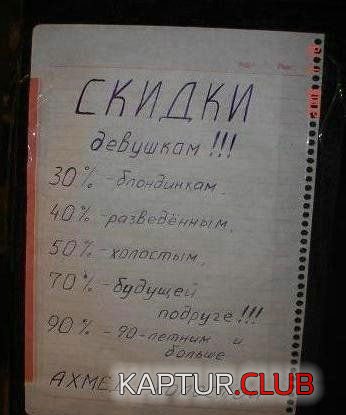 СКИДКИ
девушкам !!!
30% - блондинкам.
40% - разведённым.
50% - холостым.
70% - будущей
подруге !!!
90% - 90-летним и
больше
KAPTUR.CLUB